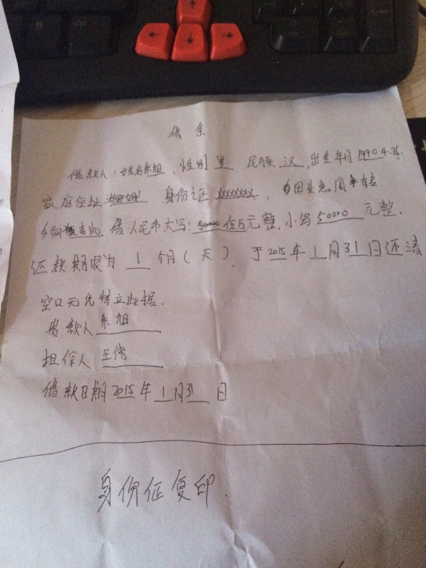 借条
借款人:姓名朱旭,性别 男 民族 汉,出生年月1990.4.26
家庭住址 身份证xxxxxxxx,因资急周转
借人民币大写:伍万元整,小写50000元整.
还款期限为 1 个月(天),于2015年1月31日还清
空口无凭特立此据.
借款人 朱旭
担保人 王伟
借款日期2015年1月31日
身份证复印.